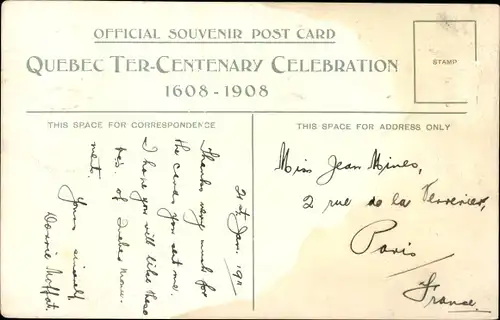 OFFICIAL SOUVENIR POST CARD
QUEBEC TER-CENTENARY CELEBRATION
1608-1908
STAMP
THIS SPACE FOR CORRESPONDENCE
THIS SPACE FOR ADDRESS ONLY
21st Jan. 1911
Thanks very much for
the cards you sent me.
I hope you will like these
of Quebec
Yours sincerely
Moffat
Miss Jean Mines,
2 rue de la
Paris
France.